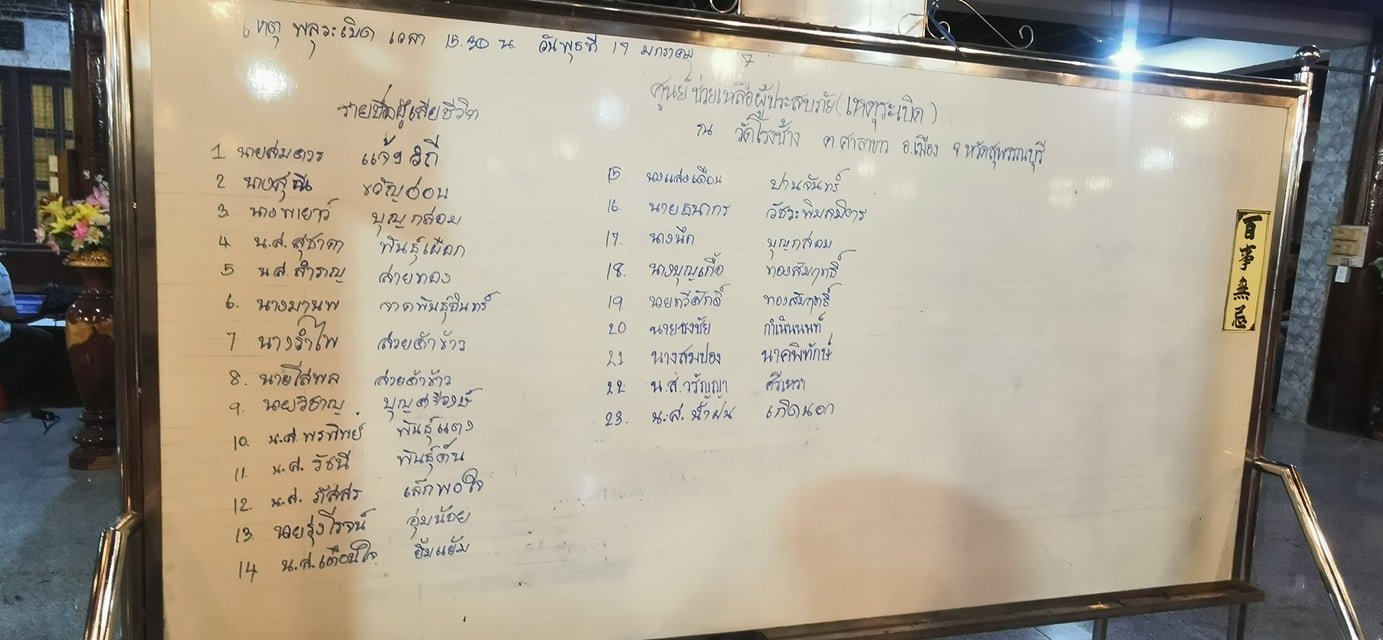 เหตุ พลุระเบิด เวลา 15.30 น. วันพุธที่ 17 มกราคม
ศูนย์ช่วยเหลือผู้ประสบภัย (เหตุระเบิด)
ณ วัดโรงช้าง ต.ศาลาขาว อ.เมือง จ.หวัดสุพรรณบุรี
รายชื่อผู้เสียชีวิต
1 นายสมควร แจ้งวิถี
2. นางสุณี ขวัญอ่อน
3. นางพเยาว์ บุญกล่อม
4 น.ส.สุชาดา พันธุ์เผือก
5 น.ส.สำราญ สายทอง
6. นางมานพ ลาดพันธุ์อินทร์
7 นางรำไพ สวยค้าข้าว
8. นายโสพล สวยค้าข้าว
9. นายวิชาญ
10. น.ส.พรทิพย์ พันธุ์แตง
11. น.ส. รัชนี พันธุ์ต้น
12. น.ส. ภัสสร เล็กพอใจ
13. นายรุ่งโรจน์ อุ่มน้อย
14 น.ส.เตือนใจ ยิ้มแย้ม
15. นางแสงเดือน ปานจันทร์
16. นายธนากร วัชระพิมลมิตร
17. นางนึก บุญกล่อม
18. นางบุญเกื้อ ทองสัมฤทธิ์
19 นายทวีศักดิ์ ทองสัมฤทธิ์
20 นายธงชัย กำเนินนนท์
21 นางสมปอง นาคพิทักษ์
22 น.ส.วรัญญา ศรีเหรา
23. น.ส.น้ำฝน เกิดนอก
百事無忌